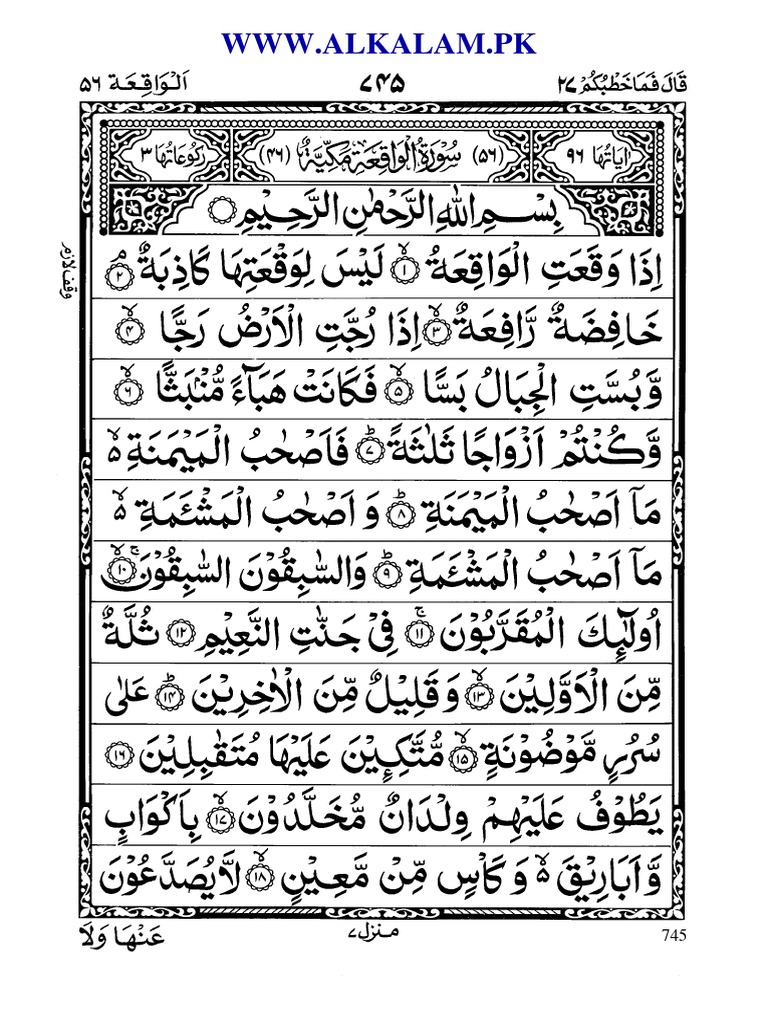 WWW.ALKALAM.PK
قَالَ فَمَا خَطْبُكُمْ ٢٧ ٧٤٥ اَلْوَاقِعَة ٥٦
اٰيَاتُهَا ٩٦ (٥٦) سُوْرَةُ الْوَاقِعَةِ مَكِّيَّةٌ (٤٦) رُكُوْعَاتُهَا ٣
بِسْمِ اللّٰهِ الرَّحْمٰنِ الرَّحِيْمِ
اِذَا وَقَعَتِ الْوَاقِعَةُ ۙ﴿١﴾ لَيْسَ لِوَقْعَتِهَا كَاذِبَةٌ ۘ﴿٢﴾
وقف لازم
خَافِضَةٌ رَّافِعَةٌ ۙ﴿٣﴾ اِذَا رُجَّتِ الْاَرْضُ رَجًّا ۙ﴿٤﴾
وَّبُسَّتِ الْجِبَالُ بَسًّا ۙ﴿٥﴾ فَكَانَتْ هَبَآءً مُّنْۢبَثًّا ۙ﴿٦﴾
وَّكُنْتُمْ اَزْوَاجًا ثَلٰثَةً ؕ﴿٧﴾ فَاَصْحٰبُ الْمَيْمَنَةِ ۙ۬
مَاۤ اَصْحٰبُ الْمَيْمَنَةِ ؕ﴿٨﴾ وَاَصْحٰبُ الْمَشْـَٔمَةِ ۙ۬
مَاۤ اَصْحٰبُ الْمَشْـَٔمَةِ ؕ﴿٩﴾ وَالسّٰبِقُوْنَ السّٰبِقُوْنَ ۚۙ﴿١٠﴾
اُولٰٓئِكَ الْمُقَرَّبُوْنَ ۚ﴿١١﴾ فِيْ جَنّٰتِ النَّعِيْمِ ﴿١٢﴾ ثُلَّةٌ
مِّنَ الْاَوَّلِيْنَ ۙ﴿١٣﴾ وَقَلِيْلٌ مِّنَ الْاٰخِرِيْنَ ؕ﴿١٤﴾ عَلٰى
سُرُرٍ مَّوْضُوْنَةٍ ۙ﴿١٥﴾ مُّتَّكِـِٕيْنَ عَلَيْهَا مُتَقٰبِلِيْنَ ﴿١٦﴾
يَطُوْفُ عَلَيْهِمْ وِلْدَانٌ مُّخَلَّدُوْنَ ۙ﴿١٧﴾ بِاَكْوَابٍ
وَّاَبَارِيْقَ ۙ۬ وَكَاْسٍ مِّنْ مَّعِيْنٍ ۙ﴿١٨﴾ لَّا يُصَدَّعُوْنَ
745 مَنزِل ٧ عَنْهَا وَلَا